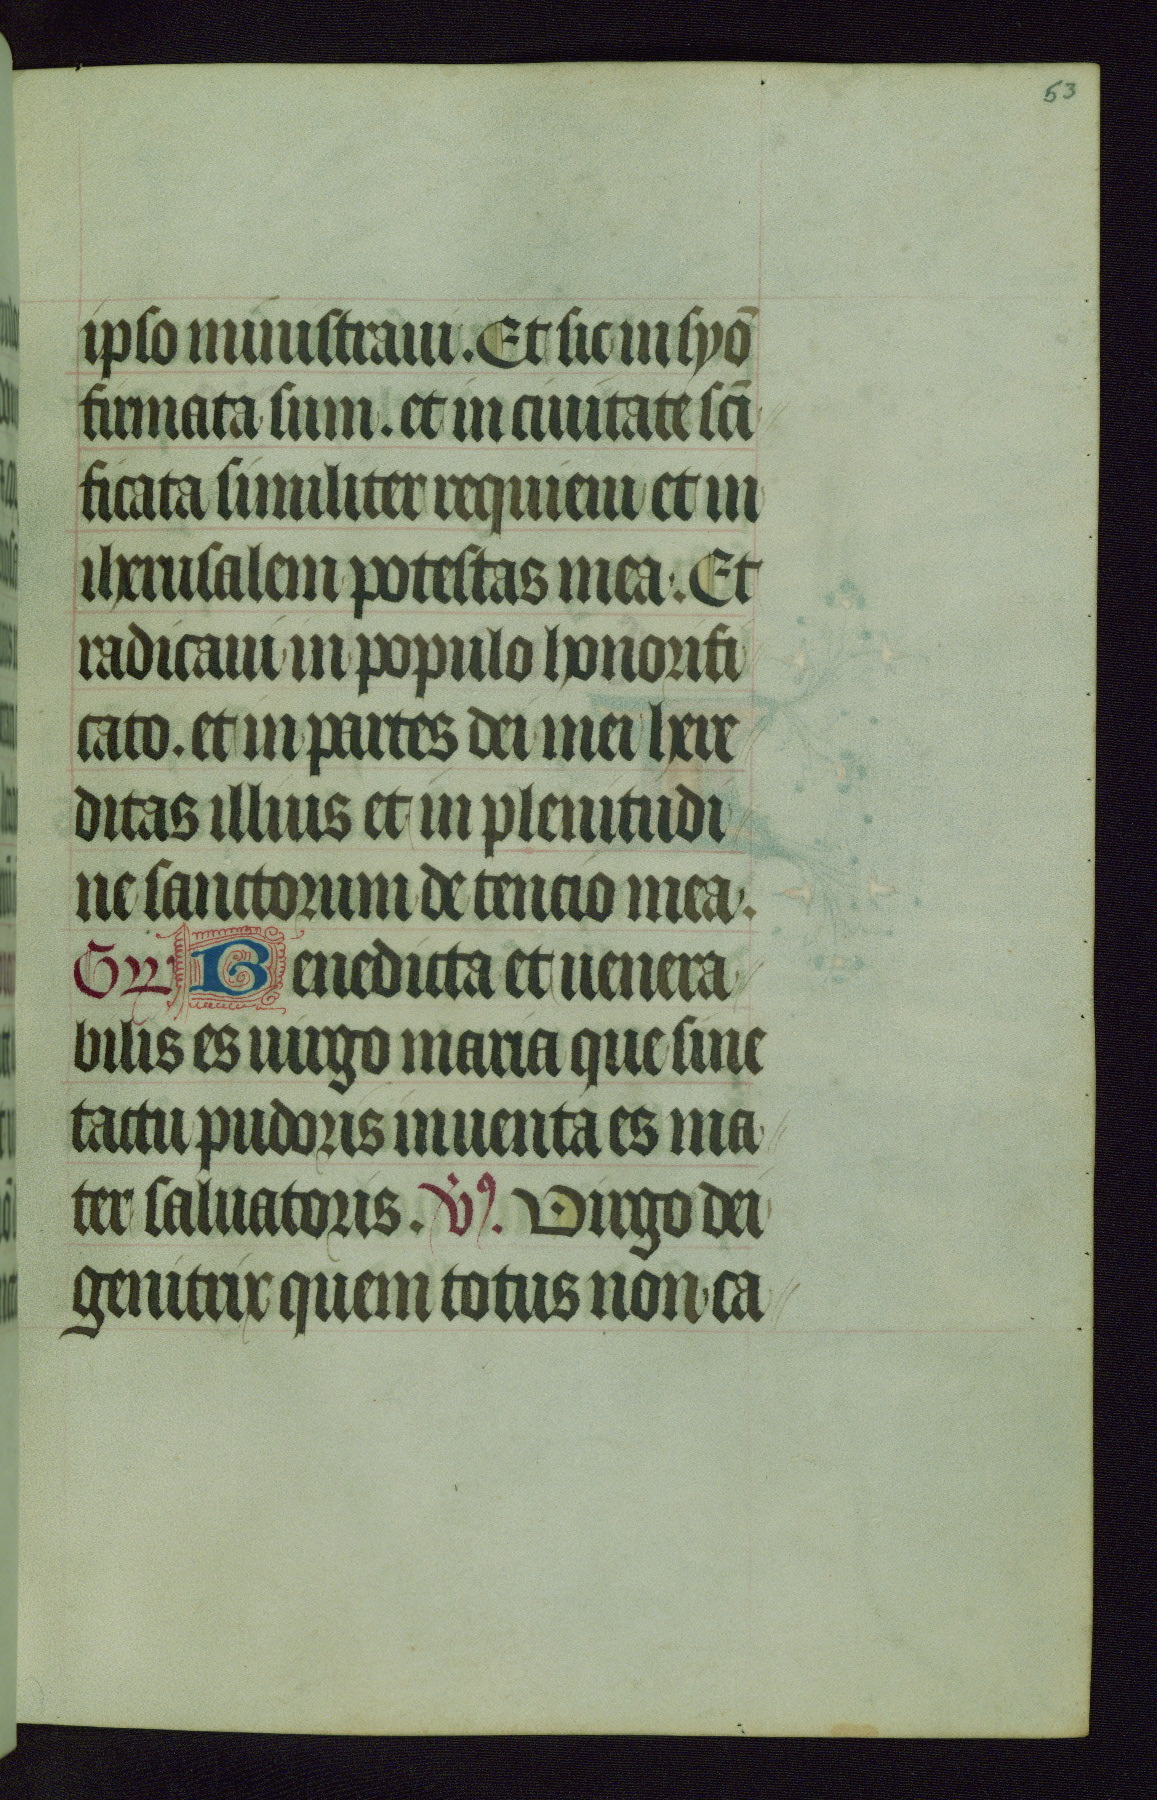 53
ipso ministraui. Et sic in syō
firmata sum. et in ciuitate scī
ficata similiter requieui et in
iherusalem potestas mea. Et
radicaui in populo honorifi
cato. et in partes dei mei here
ditas illius et in plenitudi
ne sanctorum detencio mea.
Gr̄ Benedicta et uenera
bilis es uirgo maria que sine
tactu pudoris inuenta es ma
ter saluatoris. v̉. Virgo dei
genitrix quem totus non ca